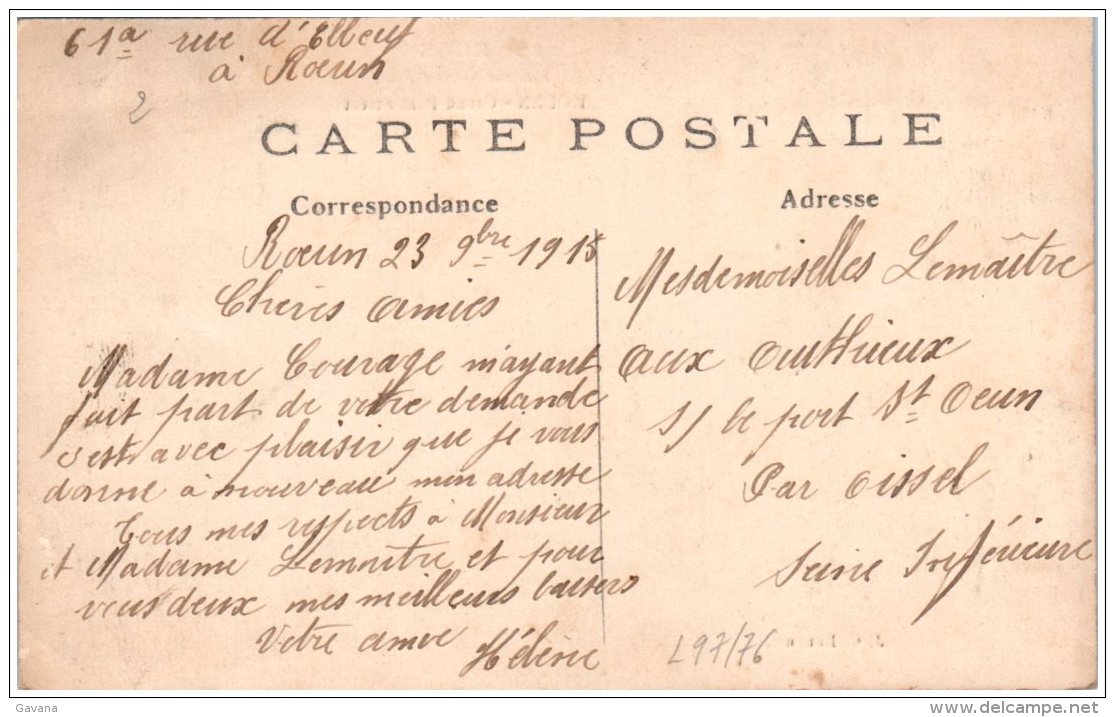 61a rue d'Elbeuf
à Rouen
2
CARTE POSTALE
Correspondance
Rouen 23 9bre 1915
Chères amies
Madame Courage m'ayant
fait part de votre demande
c'est avec plaisir que je vous
donne à nouveau mon adresse
Tous mes respects à Monsieur
et Madame Lemaître et pour
vous deux mes meilleurs baisers
Votre amie
Hélène
Adresse
Mesdemoiselles Lemaître
aux Authieux
s/ le port St Oeun
Par Oissel
Seine Inférieure
L97/76
Gavana
www.delcampe.net